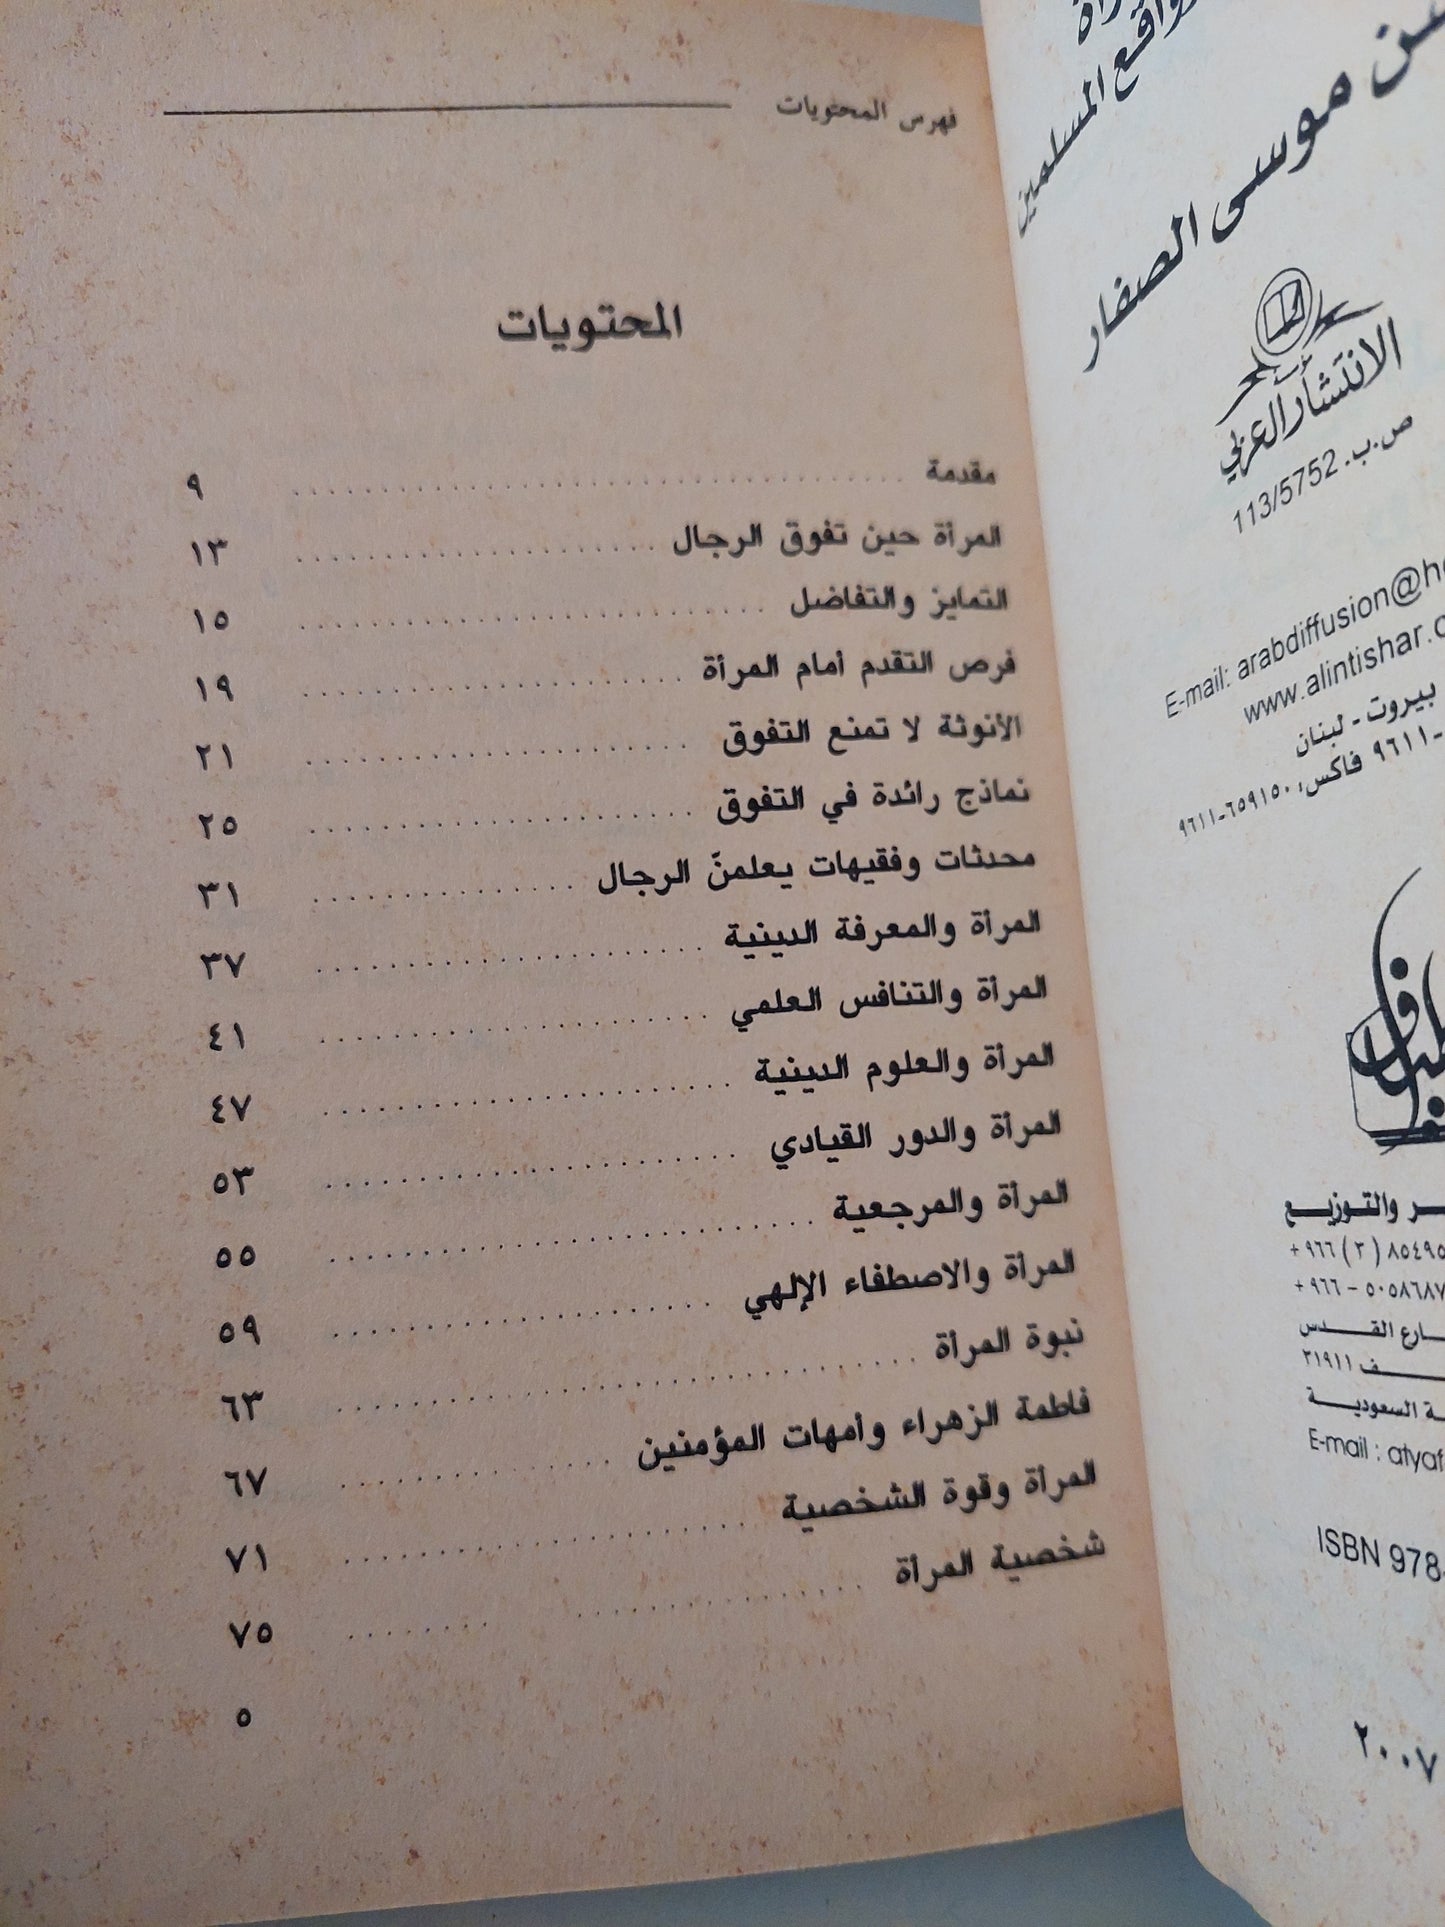 واقع المسلمين
موسى الصفار
مؤسسة
الانتشار العربي
ص.ب. 113/5752
E-mail: arabdiffusion@
www.alintishar.
بيروت - لبنان
٩٦١١- فاكس: ٦٥٩١٥٠-٩٦١١
أطياف
والتوزيع
+٩٦٦ (٣) ٨٥٤٩٥
+٩٦٦ – ٥٠٥٨٦٨٧
القدس
٣١٩١١
السعودية
E-mail : atyaf
ISBN 978-
٢٠٠٧
فهرس المحتويات
المحتويات
مقدمة ٩
المرأة حين تفوق الرجال ١٣
التمايز والتفاضل ١٥
فرص التقدم أمام المرأة ١٩
الأنوثة لا تمنع التفوق ٢١
نماذج رائدة في التفوق ٢٥
محدثات وفقيهات يعلمنّ الرجال ٣١
المرأة والمعرفة الدينية ٣٧
المرأة والتنافس العلمي ٤١
المرأة والعلوم الدينية ٤٧
المرأة والدور القيادي ٥٣
المرأة والمرجعية ٥٥
المرأة والاصطفاء الإلهي ٥٩
نبوة المرأة ٦٣
فاطمة الزهراء وأمهات المؤمنين ٦٧
المرأة وقوة الشخصية ٧١
شخصية المرأة ٧٥
٥